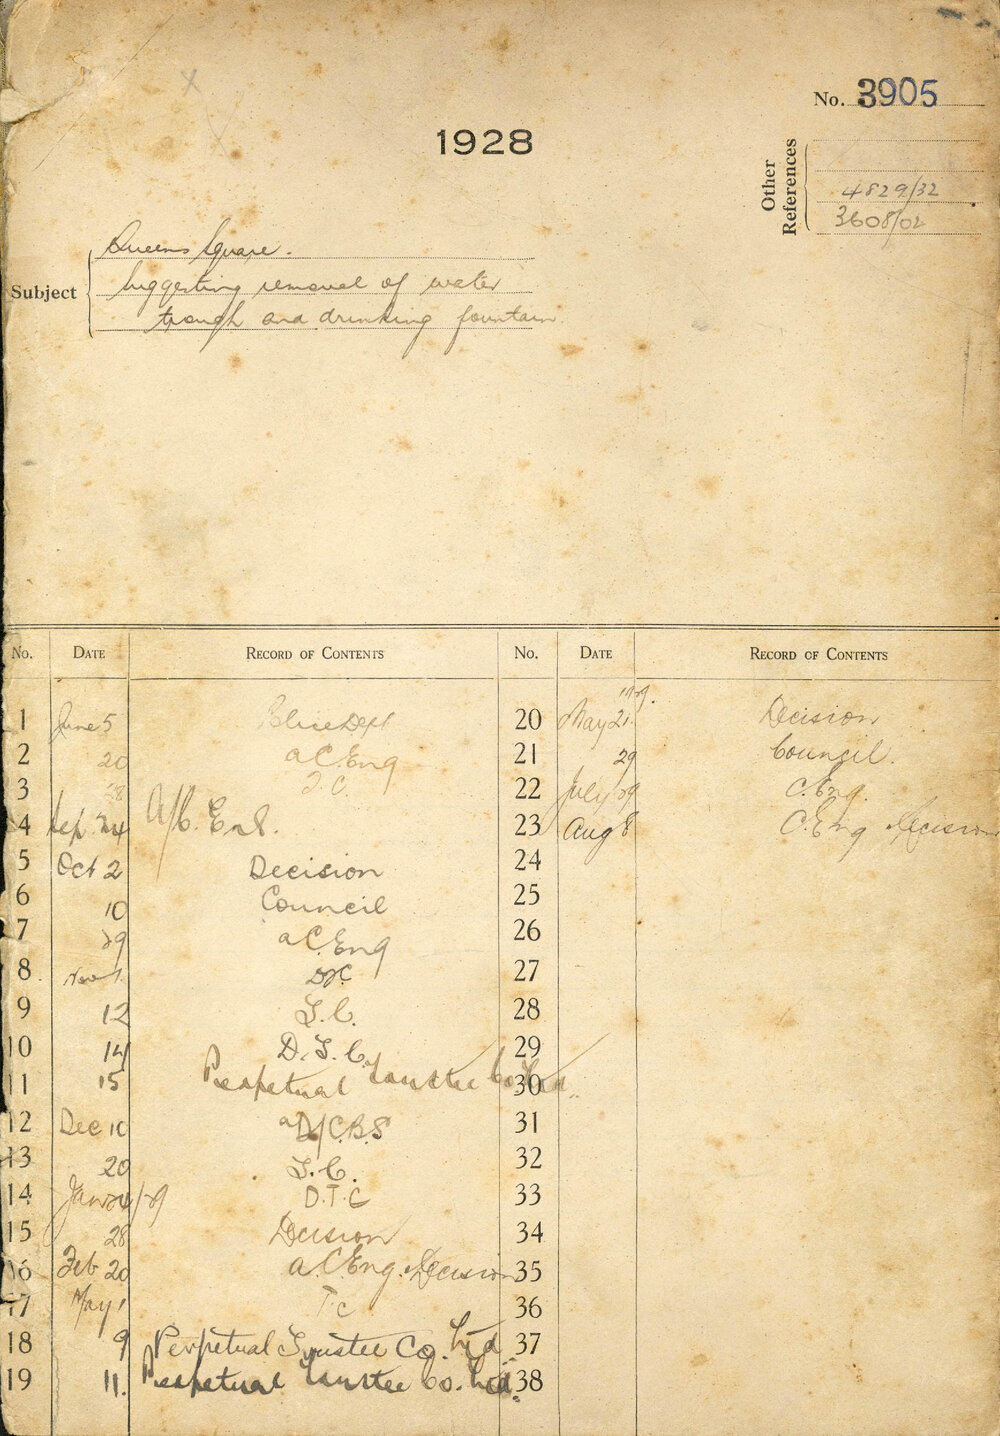 No. 3905
1928
Other References
4829/32
3608/02
Subject
Queens Square.
Suggesting removal of water
trough and drinking fountain
No. DATE RECORD OF CONTENTS No. DATE RECORD OF CONTENTS
1 June 5 Police Dept
2 20 a C. Eng
3 28 T.C.
4 Sep. 24 A/C.
5 Oct 2 Decision
6 10 Council
7 29 a C. Eng
8 Nov 1
9 12 T.C.
10 14 D.T.C.
11 15 Perpetual Trustee Co. Ltd.
12 Dec 10 a D/C.B.S
13 20 T.C.
14 Jan 24/29 D.T.C
15 28 Decision
16 Feb 20 a.C. Eng. Decision
17 May 1 T.C
18 9 Perpetual Trustee Co. Ltd
19 11. Perpetual Trustee Co. Ltd.
1929.
20 May 21. Decision
21 29 Council.
22 July 29 C. Eng.
23 Aug 8 C. Eng Decision
24
25
26
27
28
29
30
31
32
33
34
35
36
37
38